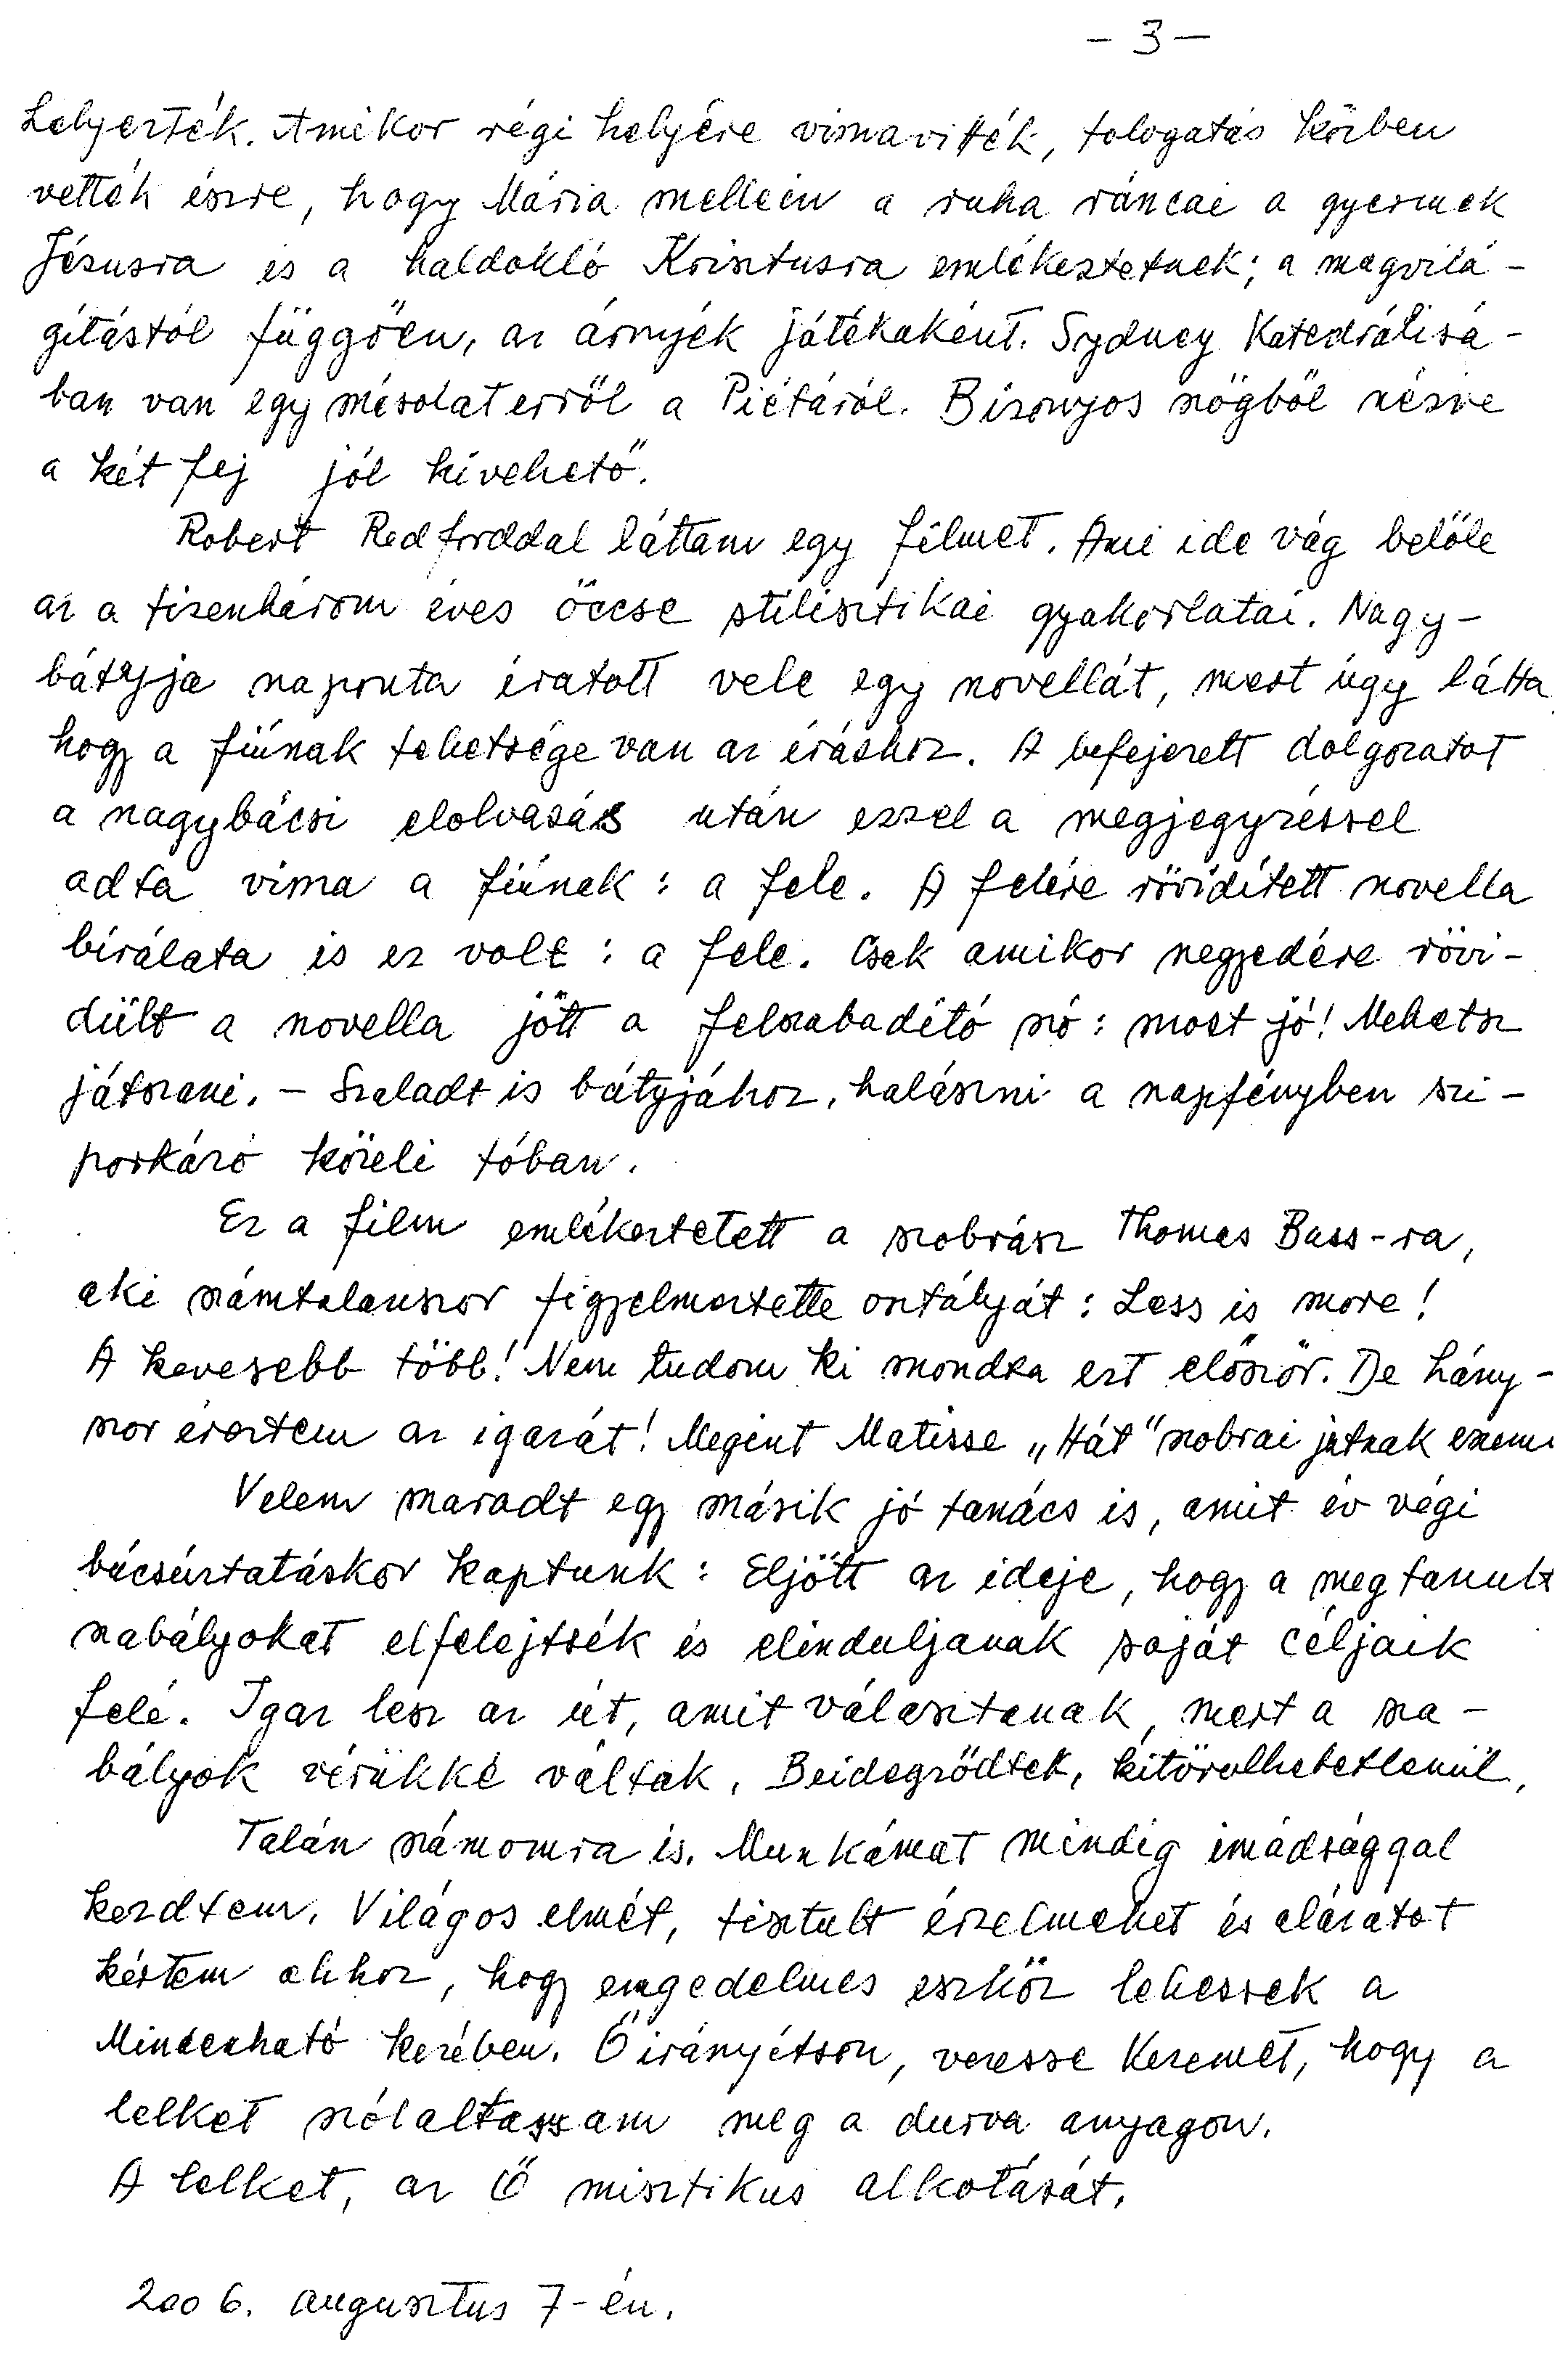 - 3 -
helyezték. Amikor régi helyére visszavitték, tologatás közben
vették észre, hogy Mária mellein a ruha ráncai a gyermek
Jézusra és a haldokló Krisztusra emlékeztetnek; a megvilá-
gítástól függően, az árnyék játékaként. Sydney Katedrálisá-
ban van egy másolat erről a Piétáról. Bizonyos szögből nézve
a két fej jól kivehető.
Robert Redforddal láttam egy filmet. Ami ide vág belőle
az a tizenhárom éves öccse stilisztikai gyakorlatai. Nagy-
bátyja naponta iratott vele egy novellát, mert úgy látta
hogy a fiúnak tehetsége van az íráshoz. A befejezett dolgozatot
a nagybácsi elolvasás után ezzel a megjegyzéssel
adta vissza a fiúnak: a fele. A felére rövidített novella
bírálata is ez volt: a fele. Csak amikor negyedére rövi-
dült a novella jött a felszabadító szó: most jó! Mehetsz
játszani. - Szaladt is bátyjához, halászni a napfényben szi-
porkázó közeli tóban.
Ez a film emlékeztetett a szobrász Thomas Bass-ra,
aki számtalanszor figyelmeztette osztályát: Less is more!
A kevesebb több! Nem tudom ki mondta ezt először. De hány-
szor éreztem az igazát! Megint Matisse „Hát" szobrai jutnak
Velem maradt egy másik jó tanács is, amit év végi
búcsúztatáskor kaptunk: Eljött az ideje, hogy a megtanult
szabályokat elfelejtsék és elinduljanak saját céljaik
felé. Igaz lesz az út, amit választanak, mert a sza-
bályok vérükké váltak. Beidegződtek, kitörölhetetlenül.
Talán számomra is. Munkámat mindig imádsággal
kezdtem. Világos elmét, tisztult érzelmeket és alázatot
kértem ahhoz, hogy engedelmes eszköz lehessek a
Mindenható kezében. Ő irányítson, vezesse kezemet, hogy a
lelket szólaltassam meg a durva anyagon.
A lelket, az Ő misztikus alkotását.
2006. augusztus 7-én.